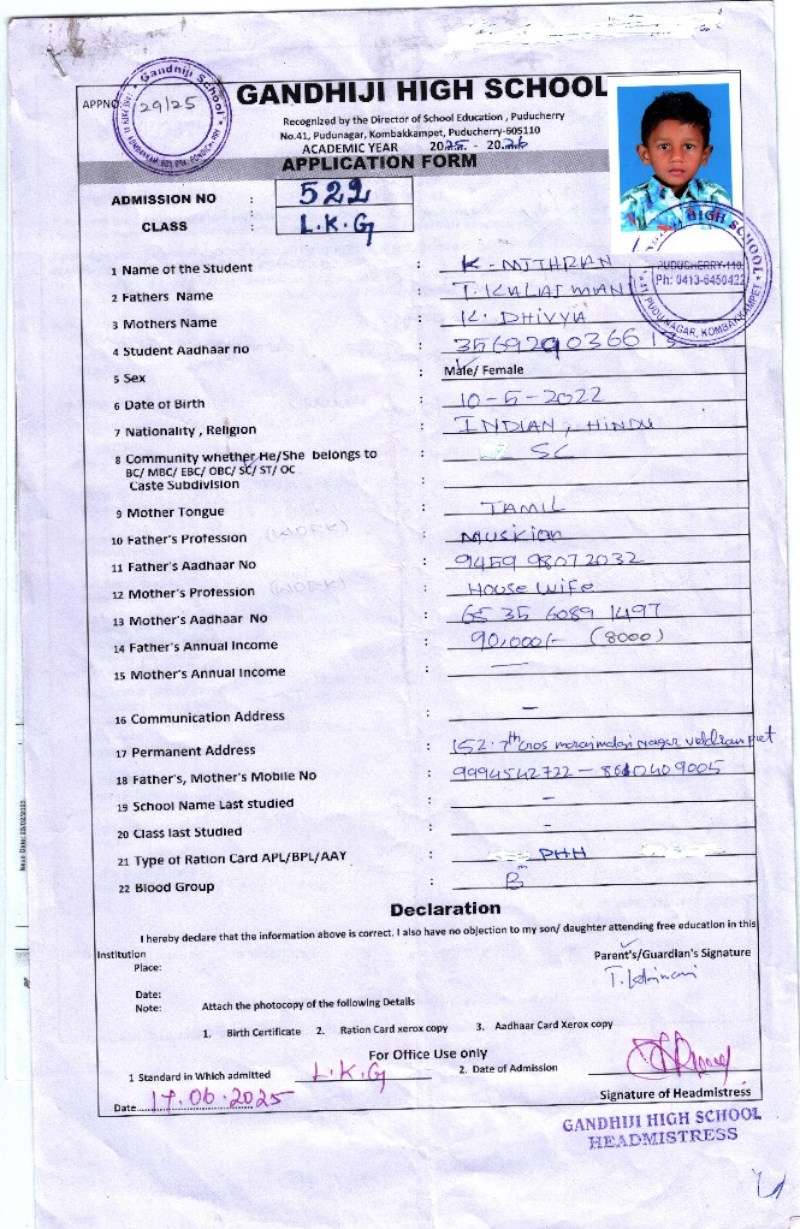 Gandhiji School
APPNO: 29/25
GANDHIJI HIGH SCHOOL
Recognized by the Director of School Education , Puducherry
No.41, Pudunagar, Kombakkampet, Puducherry-605110
ACADEMIC YEAR 2025 - 2026
APPLICATION FORM
ADMISSION NO : 522
CLASS : L.K.G
HIGH SCHOOL
PUDUCHERRY-110
Ph: 0413-6450422
41, PUDUNAGAR, KOMBAKKAMPET
1 Name of the Student : K. MITHRAN
2 Fathers Name : T. KALAIMANI
3 Mothers Name : K. DHIVYA
4 Student Aadhaar no : 3569290366 13
5 Sex : Male/ Female
6 Date of Birth : 10-5-2022
7 Nationality , Religion : INDIAN, HINDU
8 Community whether He/She belongs to : SC
BC/ MBC/ EBC/ OBC/ SC/ ST/ OC
Caste Subdivision
9 Mother Tongue : TAMIL
10 Father's Profession (WORK) :
11 Father's Aadhaar No : 9459 9807 2032
12 Mother's Profession (WORK) : House wife
13 Mother's Aadhaar No : 6535 6089 1497
14 Father's Annual Income : 90,000/- (8000)
15 Mother's Annual Income : —
16 Communication Address : –
17 Permanent Address : 152. 7th cros Nagar
18 Father's, Mother's Mobile No : 9994542722 – 8610409005
19 School Name Last studied : -
20 Class last Studied : -
21 Type of Ration Card APL/BPL/AAY : PHH
22 Blood Group : B
Declaration
I hereby declare that the information above is correct. I also have no objection to my son/ daughter attending free education in this
Institution
Parent's/Guardian's Signature
Place:
Date:
Note: Attach the photocopy of the following Details
1. Birth Certificate 2. Ration Card xerox copy 3. Aadhaar Card Xerox copy
For Office Use only
1 Standard in Which admitted L.K.G 2. Date of Admission
Signature of Headmistress
Date 17.06.2025
GANDHIJI HIGH SCHOOL
HEADMISTRESS